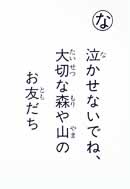 な
泣かせないでね、
大切な森や山の
お友だち